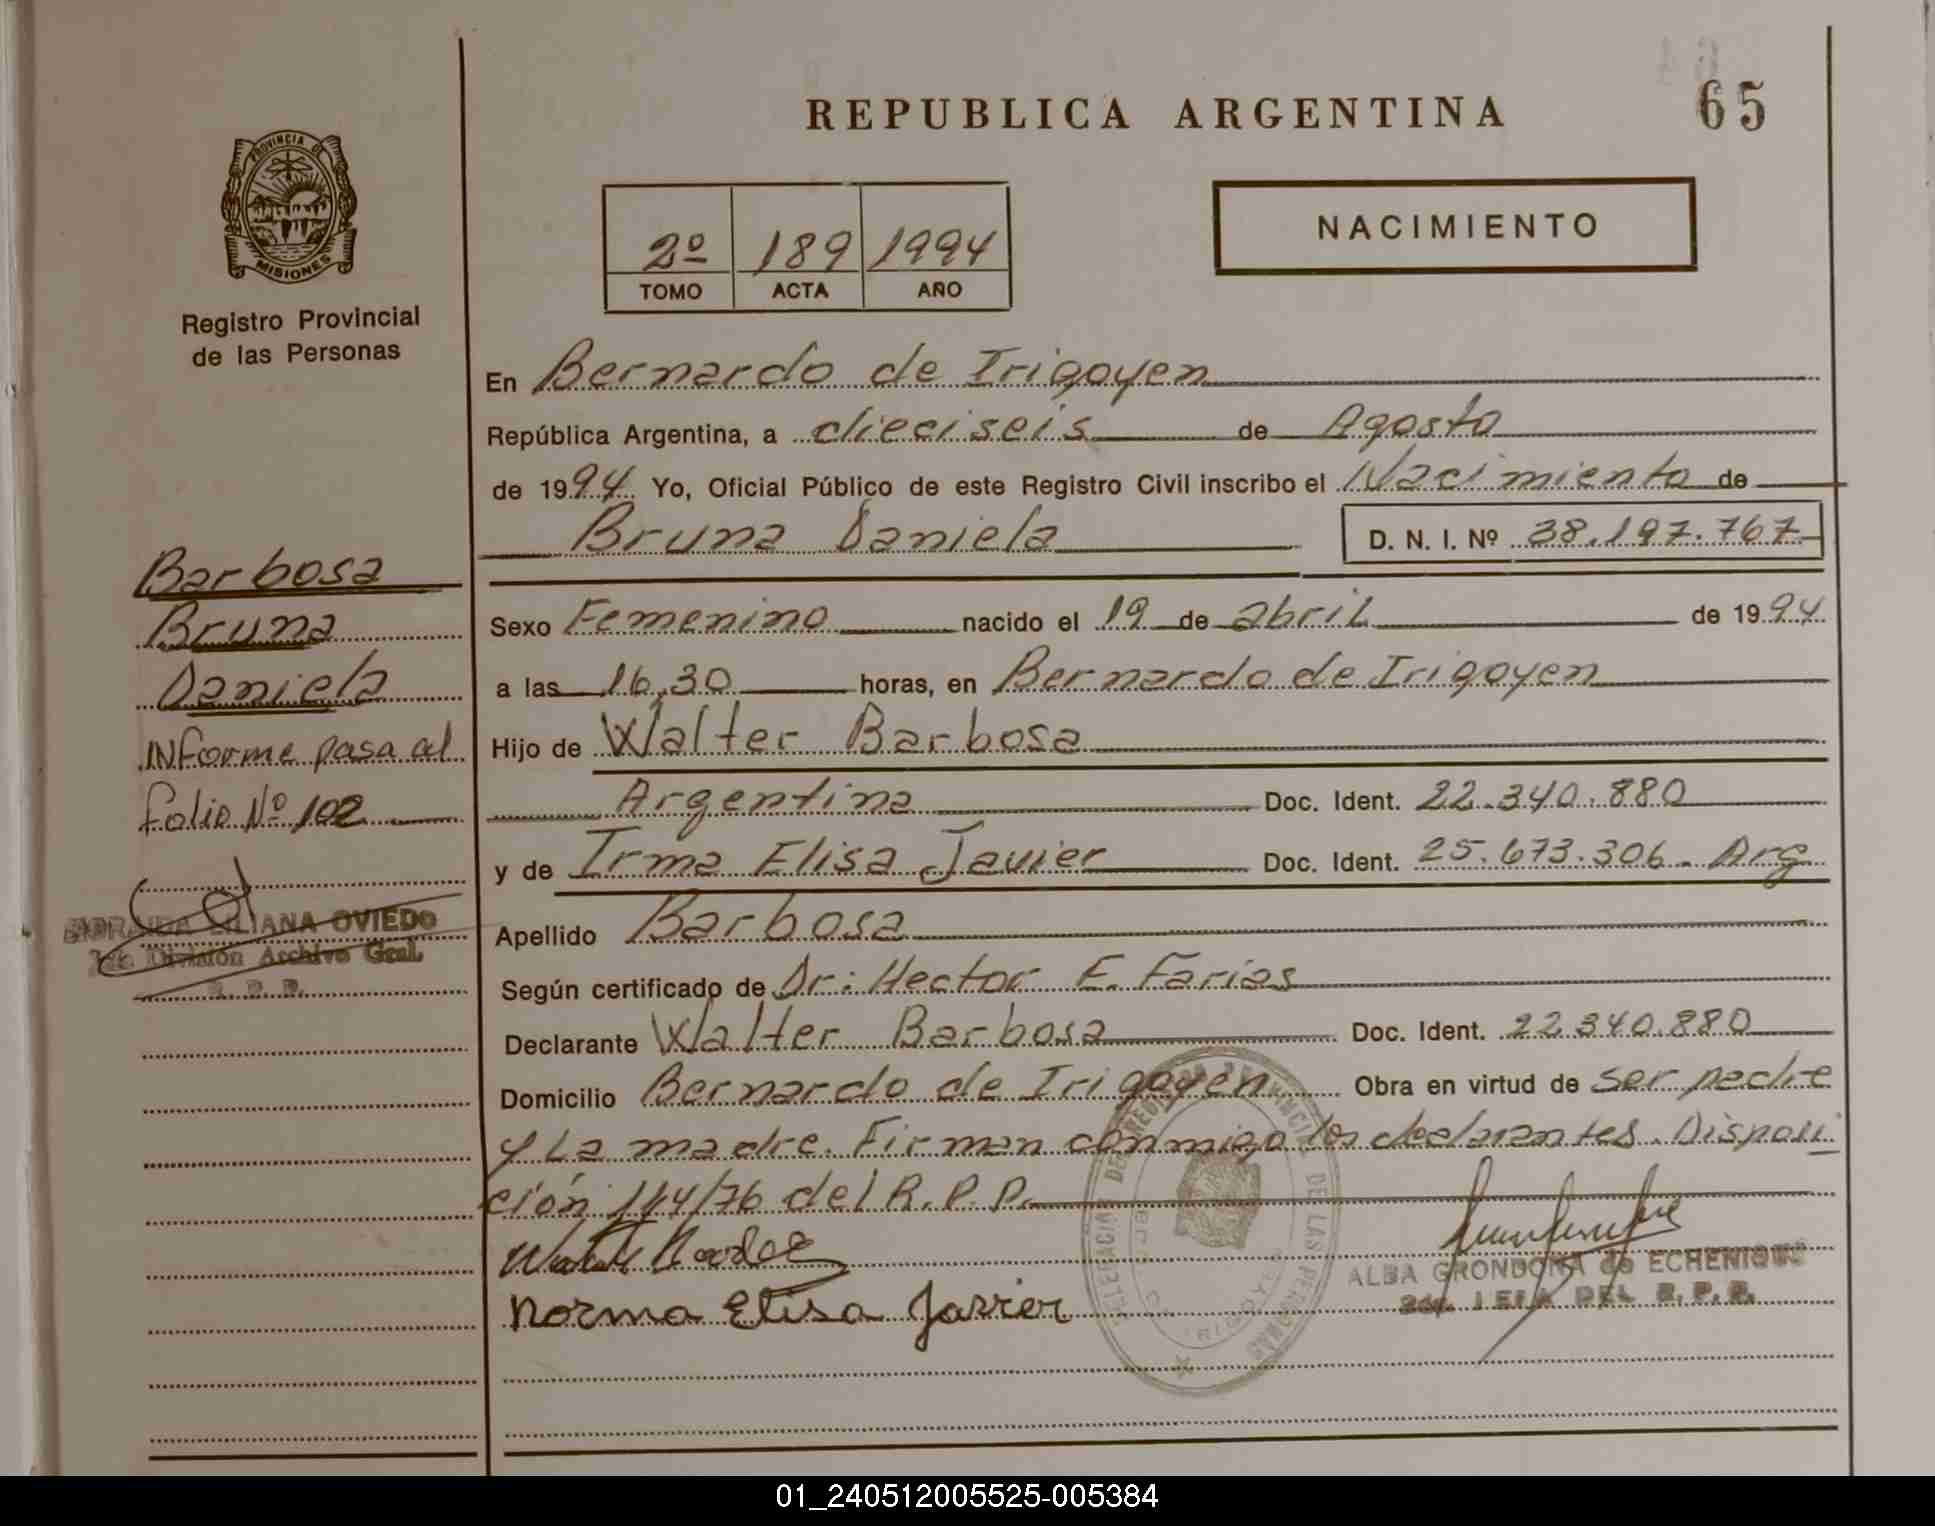 REPUBLICA ARGENTINA
65
PROVINCIA DE
MISIONES
Registro Provincial
de las Personas
2º 189 1994
TOMO ACTA AÑO
NACIMIENTO
En Bernardo de Irigoyen
República Argentina, a dieciseis de Agosto
de 1994 Yo, Oficial Público de este Registro Civil inscribo el Nacimiento de
Bruna Daniela
D. N. I. Nº 38.197.767
Barbosa
Bruna
Daniela
INforme pasa al
folio Nº 102
LILIANA OVIEDO
División Archivo Gral.
R. P. P.
Sexo Femenino nacido el 19 de abril de 1994
a las 16,30 horas, en Bernardo de Irigoyen
Hijo de Walter Barbosa
Argentina Doc. Ident. 22.340.880
y de Irma Elisa Javier Doc. Ident. 25.673.306. Arg
Apellido Barbosa
Según certificado de Dr: Hector E. Farias
Declarante Walter Barbosa Doc. Ident. 22.340.880
Domicilio Bernardo de Irigoyen Obra en virtud de ser padre
y La madre. Firman conmigo los declarantes. Disposi
ción 114/76 del R.P.P.
Norma Elisa Javier
ALBA GRONDONA de ECHENIQUE
JEFA DEL R. P. P.
DE LAS PERSONAS
01_240512005525-005384